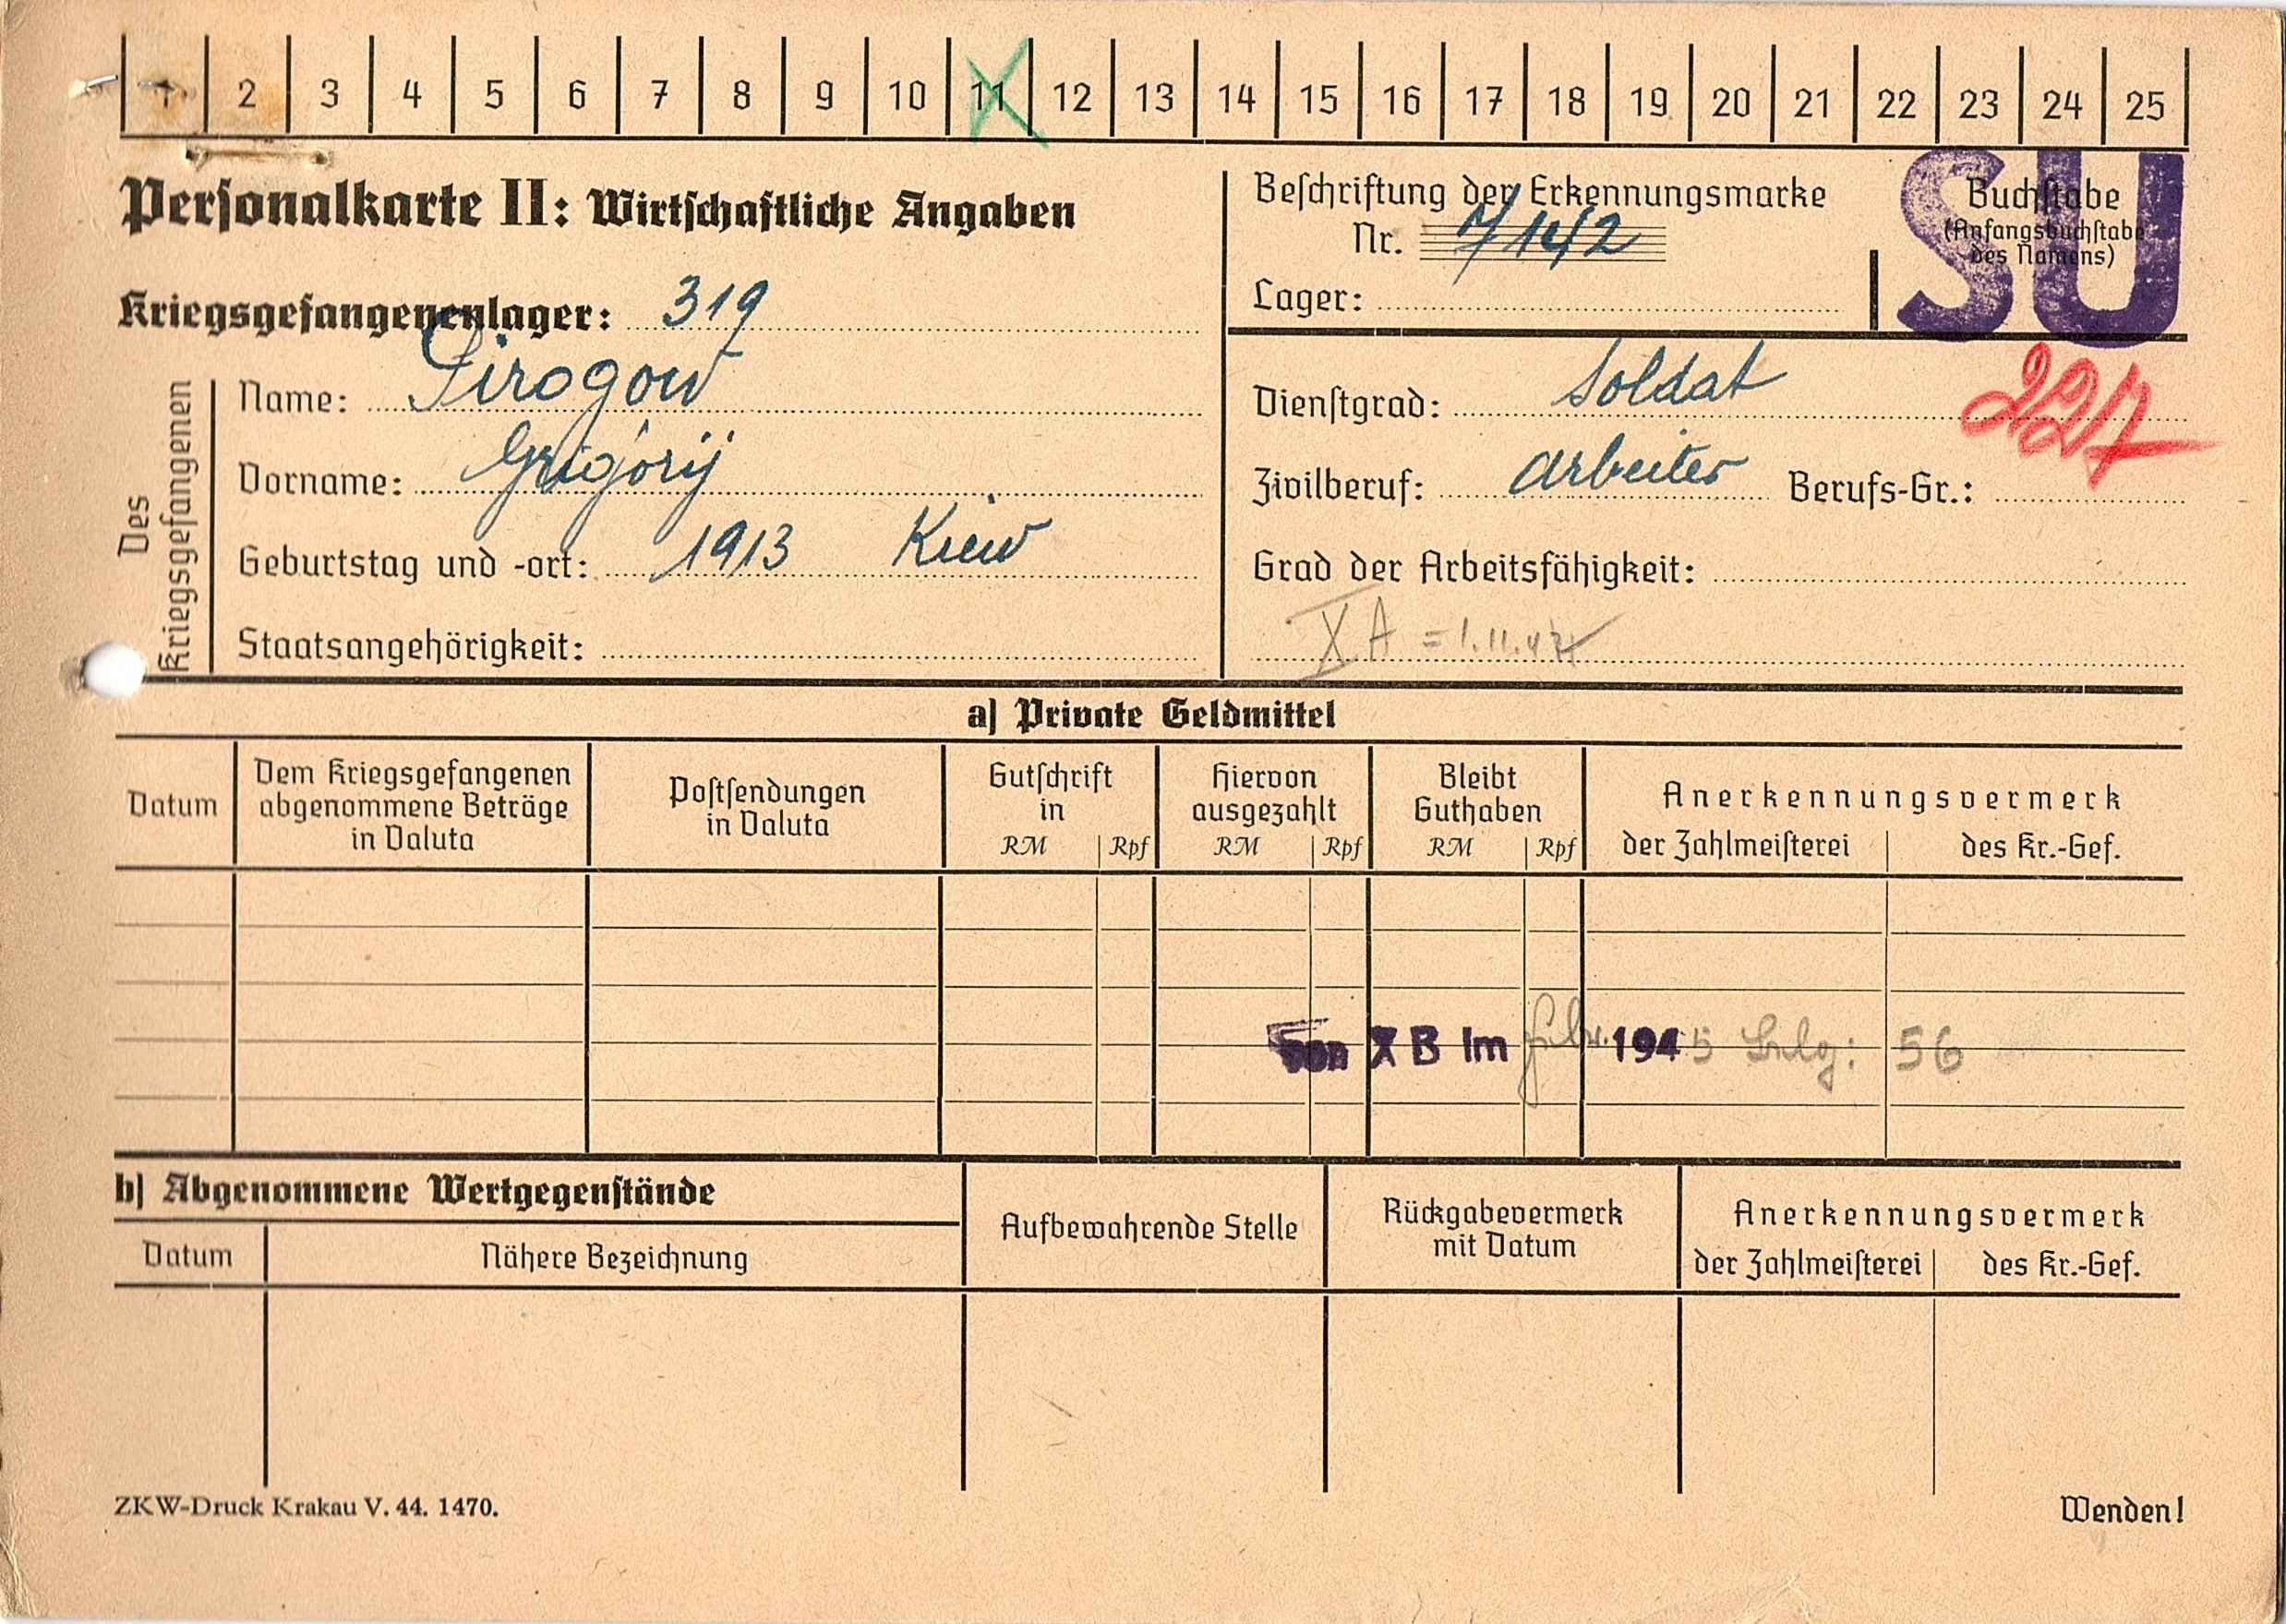 1 2 3 4 5 6 7 8 9 10 11 12 13 14 15 16 17 18 19 20 21 22 23 24 25
Personalkarte II: Wirtschaftliche Angaben
Kriegsgefangenenlager: 319
Des Kriegsgefangenen
Name: Pirogow
Vorname: Grigorij
Geburtstag und -ort: 1913 Kiew
Staatsangehörigkeit:
Beschriftung der Erkennungsmarke
Nr. 7142
Lager:
Buchstabe
(Anfangsbuchstabe
des Namens)
SU
Dienstgrad: Soldat
227
Zivilberuf: Arbeiter Berufs-Gr.:
Grad der Arbeitsfähigkeit:
X A = 1.11.44
a) Private Geldmittel
Datum
Dem Kriegsgefangenen
abgenommene Beträge
in Valuta
Postsendungen
in Valuta
Gutschrift
in
RM Rpf
Hiervon
ausgezahlt
RM Rpf
Bleibt
Guthaben
RM Rpf
Anerkennungsvermerk
der Zahlmeisterei des Kr.-Gef.
von X B im 1945 56
b) Abgenommene Wertgegenstände
Datum Nähere Bezeichnung
Aufbewahrende Stelle
Rückgabevermerk
mit Datum
Anerkennungsvermerk
der Zahlmeisterei des Kr.-Gef.
ZKW-Druck Krakau V. 44. 1470.
Wenden!